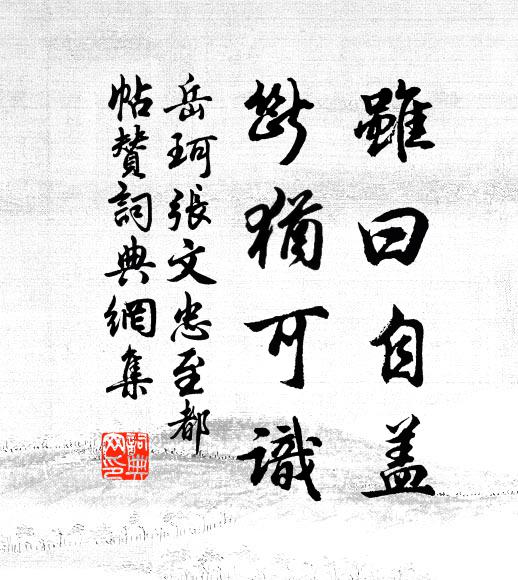 雖曰自盖
猶可識
岳珂張文忠至都
帖贊詞典網集
詞典网印